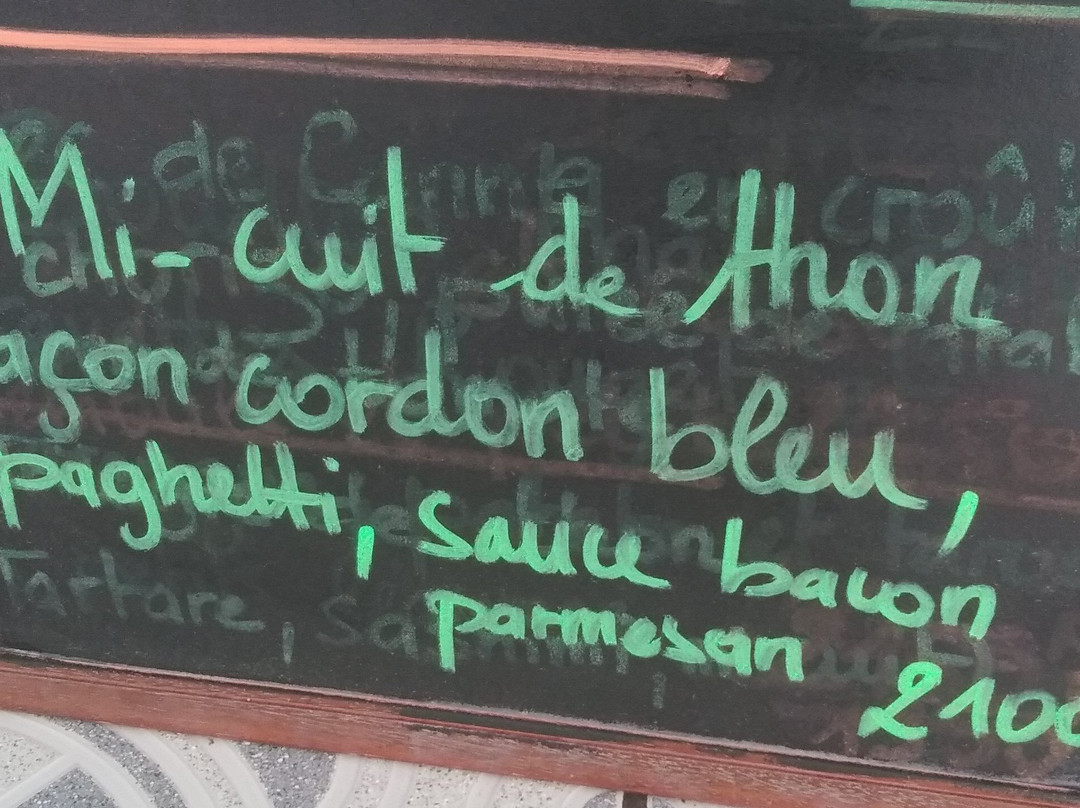 Mi-cuit de thon
açon cordon bleu,
paghetti, sauce bacon
parmesan 2100